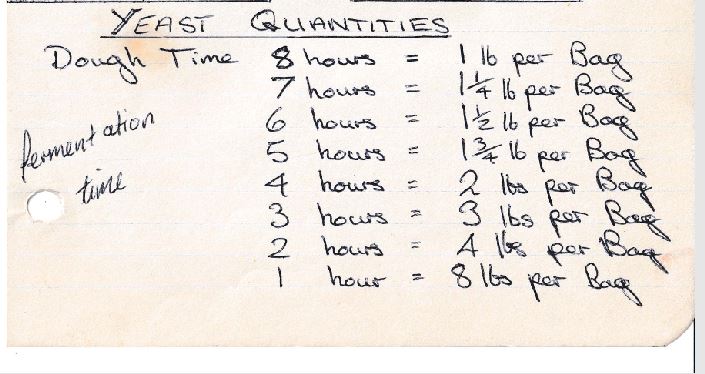 YEAST QUANTITIES
Dough Time 8 hours = 1 lb per Bag
7 hours = 1 1/4 lb per Bag
6 hours = 1 1/2 lb per Bag
5 hours = 1 3/4 lb per Bag
4 hours = 2 lbs per Bag
3 hours = 3 lbs per Bag
2 hours = 4 lbs per Bag
1 hour = 8 lbs per Bag
fermentation
time